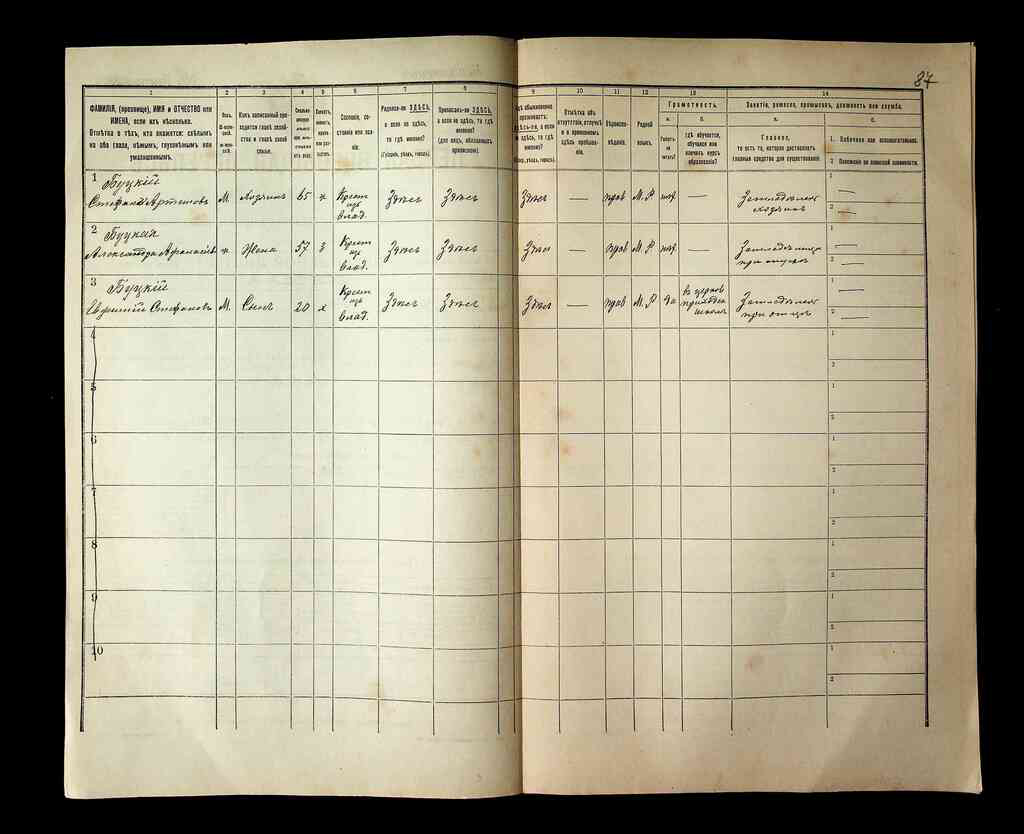 87
1 2 3 4 5 6 7 8 9 10 11 12 13 14
ФАМИЛІЯ, (прозвище), ИМЯ и ОТЧЕСТВО или
ИМЕНА, если ихъ нѣсколько.
Отмѣтка о тѣхъ, кто окажется: слѣпымъ
на оба глаза, нѣмымъ, глухонѣмымъ или
умалишеннымъ.
Полъ.
Какъ записанный при-
ходится главѣ хозяй-
ства и главѣ своей
семьи.
Сословіе, со-
стояніе или зва-
ніе.
Родился-ли ЗДѢСЬ,
а если не здѣсь,
то гдѣ
именно?
(Губернія, уѣздъ, городъ).
Приписанъ-ли ЗДѢСЬ,
а если не здѣсь, то гдѣ
именно?
(для лицъ, обязанныхъ
припискою).
Отмѣтка объ
отсутствіи, отлучкѣ
и о временномъ
здѣсь пребыва-
ніи.
Вѣроиспо-
вѣданіе.
Родной
языкъ.
Грамотность.
а.
Умѣетъ-
ли
читать?
б.
гдѣ обучается,
обучался или
кончилъ курсъ
образованія?
Занятіе, ремесло, промыселъ, должность или служба.
а.
Главное,
то есть то, которое доставляетъ
главныя средства для существованія.
б.
1. Побочное или вспомогательное.
2 Положеніе по воинской повинности.
1 Буцкій
Стефанъ Артемовъ М. Хозяинъ 65 Крест изъ влад. Здѣсь Здѣсь Здѣсь — прав М. Р нѣт — Земледѣлецъ хозяинъ
1 —
2 —
2 Буцкая
Александра Афанасіев Жена 57 Крест изъ влад. Здѣсь Здѣсь Здѣсь — прав М. Р нѣт —
1 —
2 —
3 Буцкій
Стефановъ М. Сынъ 20 х Крест изъ влад. Здѣсь Здѣсь Здѣсь — прав М. Р да въ церков приходск школѣ Земледѣлецъ при отцѣ
1 —
2 —
4
1
2
5
1
2
6
1
2
7
1
2
8
1
2
9
1
2
10
1
2